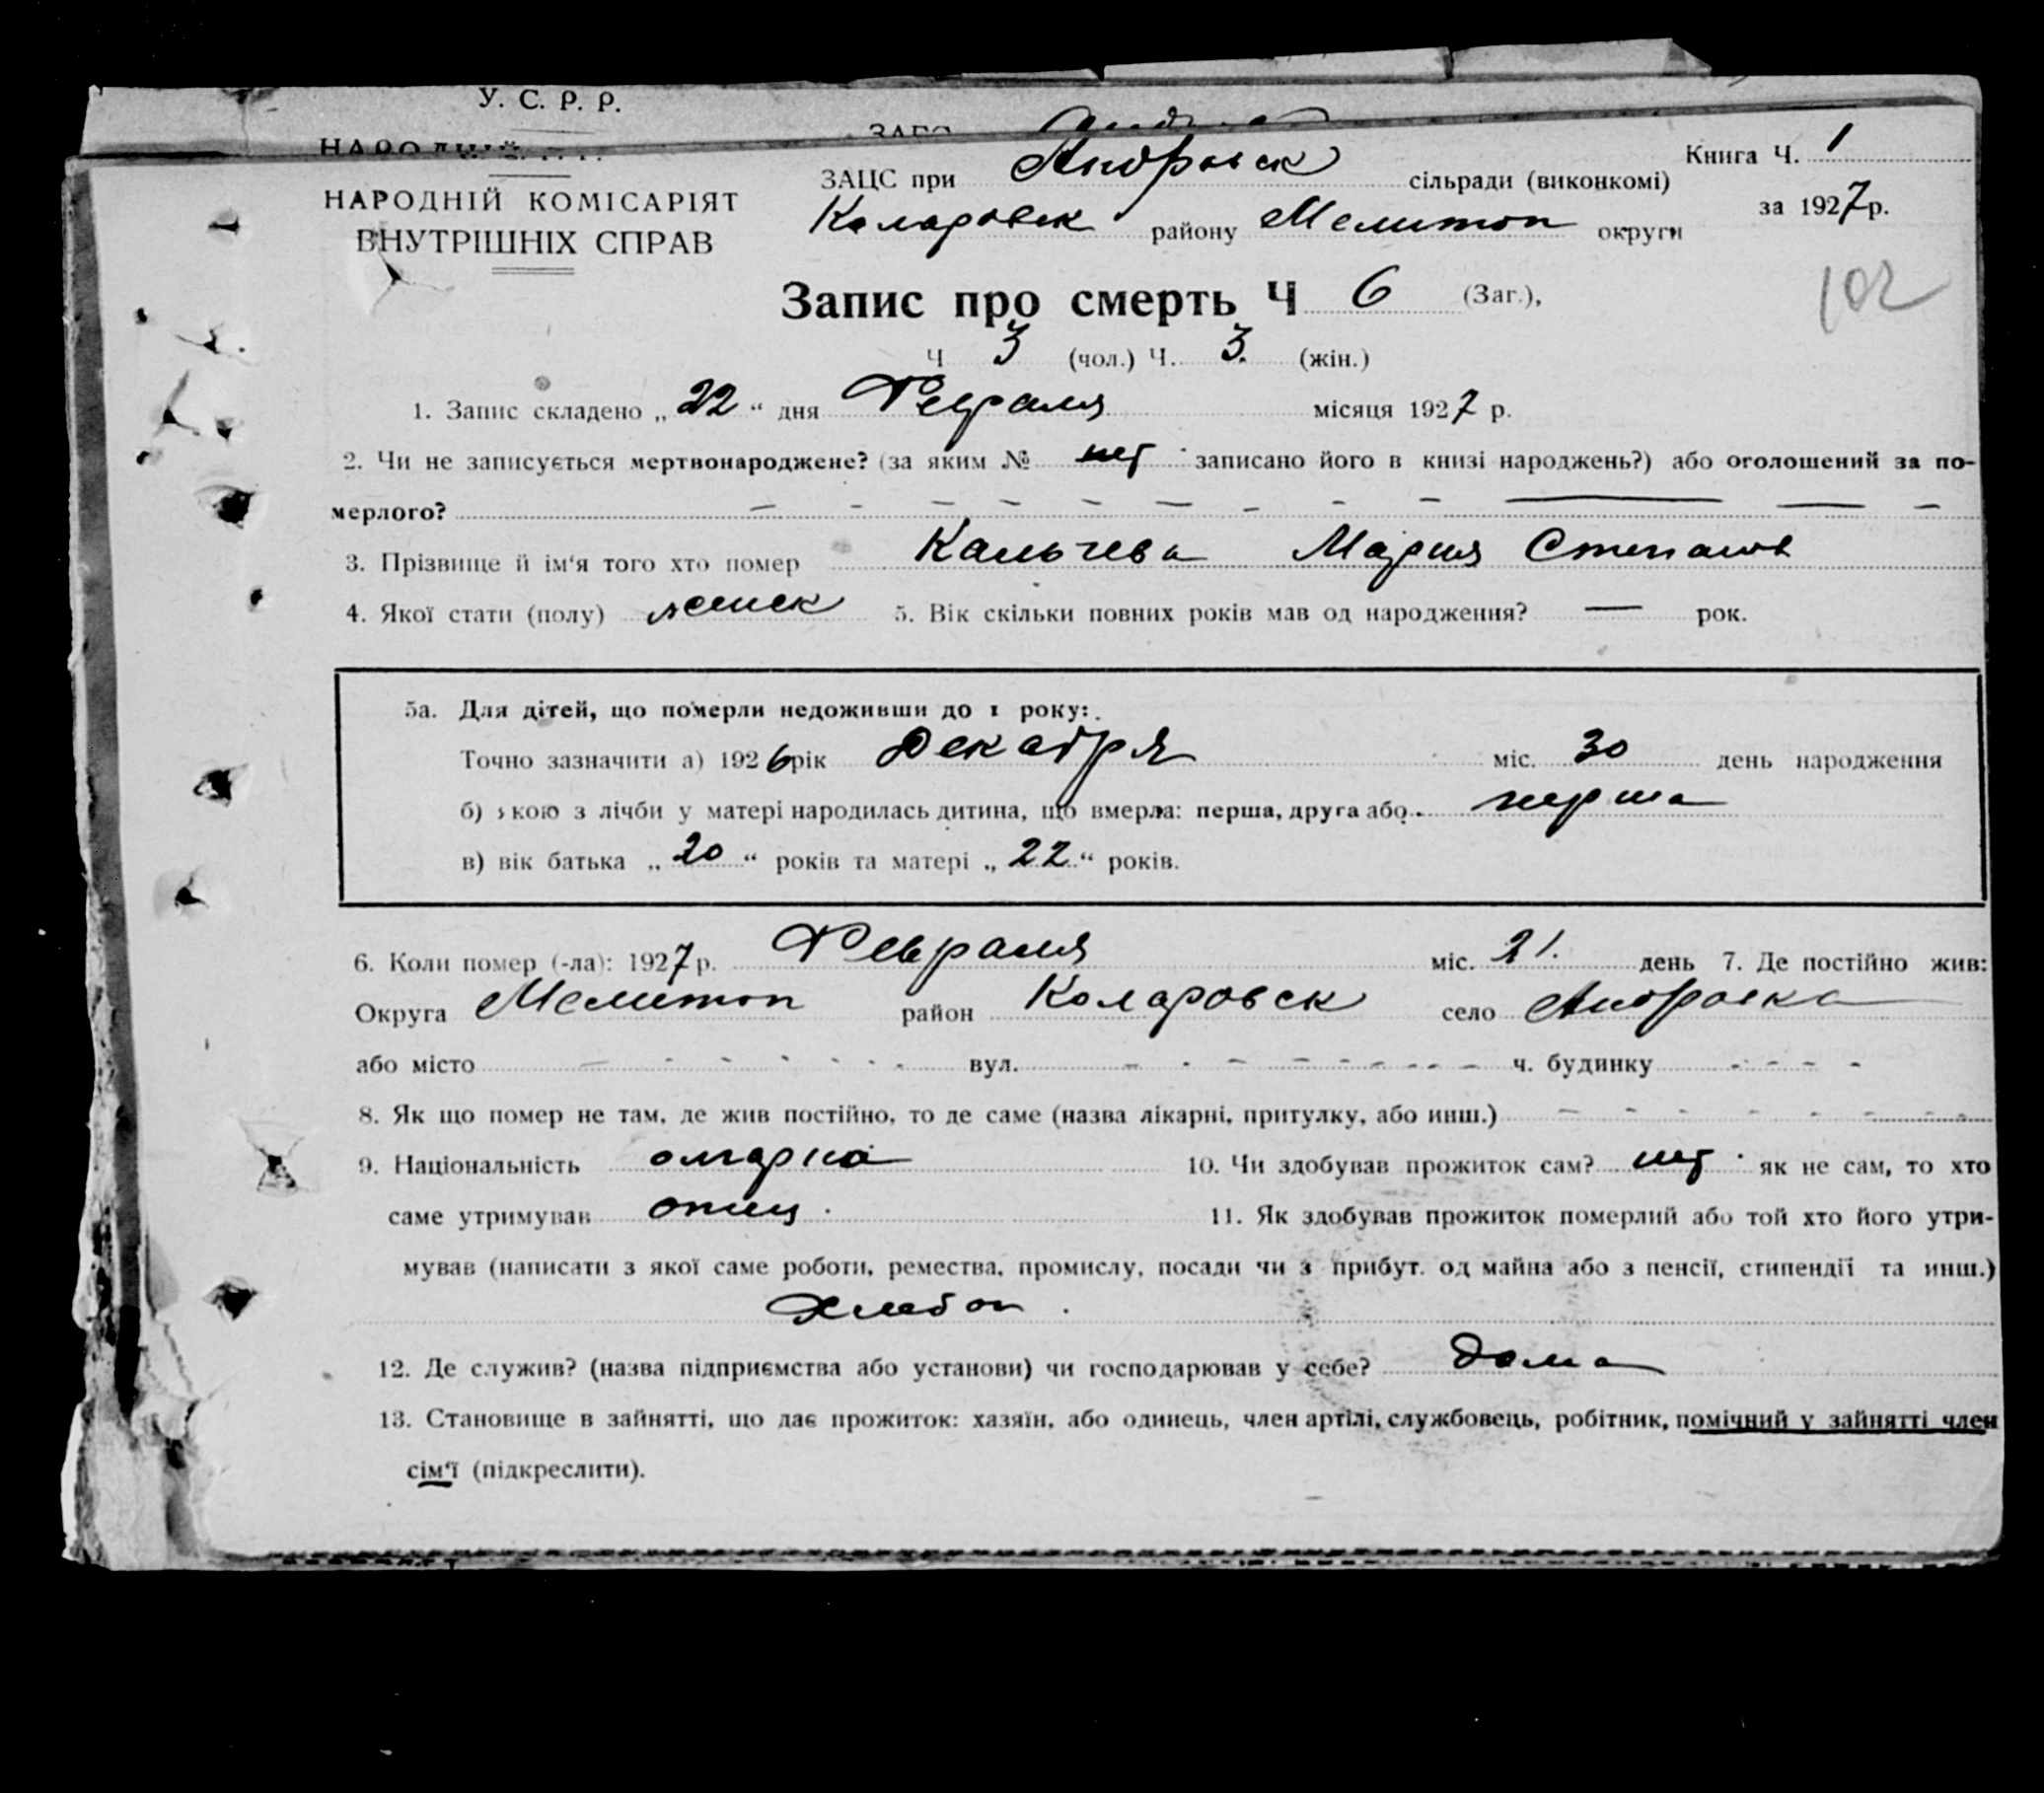 У. С. Р. Р.
НАРОДНІЙ КОМІСАРІЯТ
ВНУТРІШНІХ СПРАВ
ЗАЦС при Андровск сільради (виконкомі)
Коларовск району Мелитоп округи
Книга Ч. 1
за 1927 р.
102
Запис про смерть Ч 6 (Заг.),
Ч 3 (чол.) Ч. 3. (жін.)
1. Запис складено „22“ дня Февраля місяця 1927 р.
2. Чи не записується мертвонароджене? (за яким № нет записано його в книзі народжень?) або оголошений за по-
мерлого? — — — — — — — — — — — —
3. Прізвище й ім‘я того хто помер Кальчева Мария Степанов
4. Якої стати (полу) женск 5. Вік скільки повних років мав од народження? — рок.
5а. Для дітей, що померли недоживши до 1 року:
Точно зазначити а) 1926 рік Декабря міс. 30 день народження
б) якою з лічби у матері народилась дитина, що вмерла: перша, друга або перша
в) вік батька „20“ років та матері „22“ років.
6. Коли помер (-ла): 1927 р. Февраля міс. 21. день 7. Де постійно жив:
Округа Мелитоп район Коларовск село Андровка
або місто - - - - - - - вул. - - - - - - - - ч. будинку - - - - -
8. Як що помер не там, де жив постійно, то де саме (назва лікарні, притулку, або инш.) - - - - - - - -
9. Національність 10. Чи здобував прожиток сам? нет як не сам, то хто
саме утримував отец. 11. Як здобував прожиток померлий або той хто його утри-
мував (написати з якої саме роботи, ремества, промислу, посади чи з прибут. од майна або з пенсії, стипендії та инш.)
Хлебоп.
12. Де служив? (назва підприємства або установи) чи господарював у себе? дома
13. Становище в зайнятті, що дає прожиток: хазяїн, або одинець, член артілі, службовець, робітник, помічний у зайнятті член
сім‘ї (підкреслити).